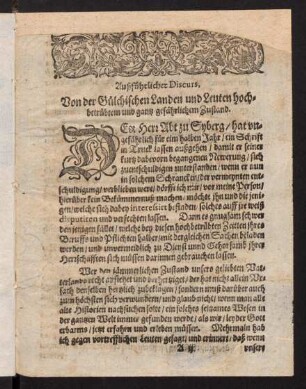 Außführlicher Discurs,
Von der Gülchischen Landen und Leuten hoch-
betrübtem und gantz gefährlichem Zustand.
DEr Herr Abt zu Syberg / hat un-
gefährlich für eim halben Jahr / ein Schrifft
in Truck lassen außgehen / damit er seiner
kurtz davorn begangenen Newerung / sich
zuentschuldigen unterstanden / wenn er nun
in solchem Schrancken / der vermeynten ent-
schuldigung / verblieben were / dörffte ich mir / vor meine Person /
hierüber kein Bekümmernuß machen / möchte ihn und die jeni-
gen / welche sich dabey interessirt befinden solches auff jre weiß
disputiren und verfechten lassen. Dann es gnugsam schwer
den jenigen fället / welche bey diesen hochbetrübten Zeiten jhres
Beruffs und Pflichten halber mit dergleichen Sachen beladen
werden / und unvermeidlich zu Dienst und Gehorsamb jhrer
Herrschafften sich müssen darinnen gebrauchen lassen.
Wer den jämmerlichen Zustand unsers geliebten Vat-
terlands recht ansiehet und behertziget / der hat nicht allein Vr-
sach denselben hertzlich zubeklagen / sondern muß darüber auch
zum höchsten sich verwundern / und glaub nicht / wenn man alle
alte Historien nachsuchen solte / ein solches seltzames Wesen in
der gantzen Welt immer gefunden werde / als wir / leyder Gott
erbarms / jetzt erfahren und erleben müssen. Mehrmaln hab
ich gegen vortrefflichen Leuten gesagt / und erinnert / daß wenn
A ij unsere